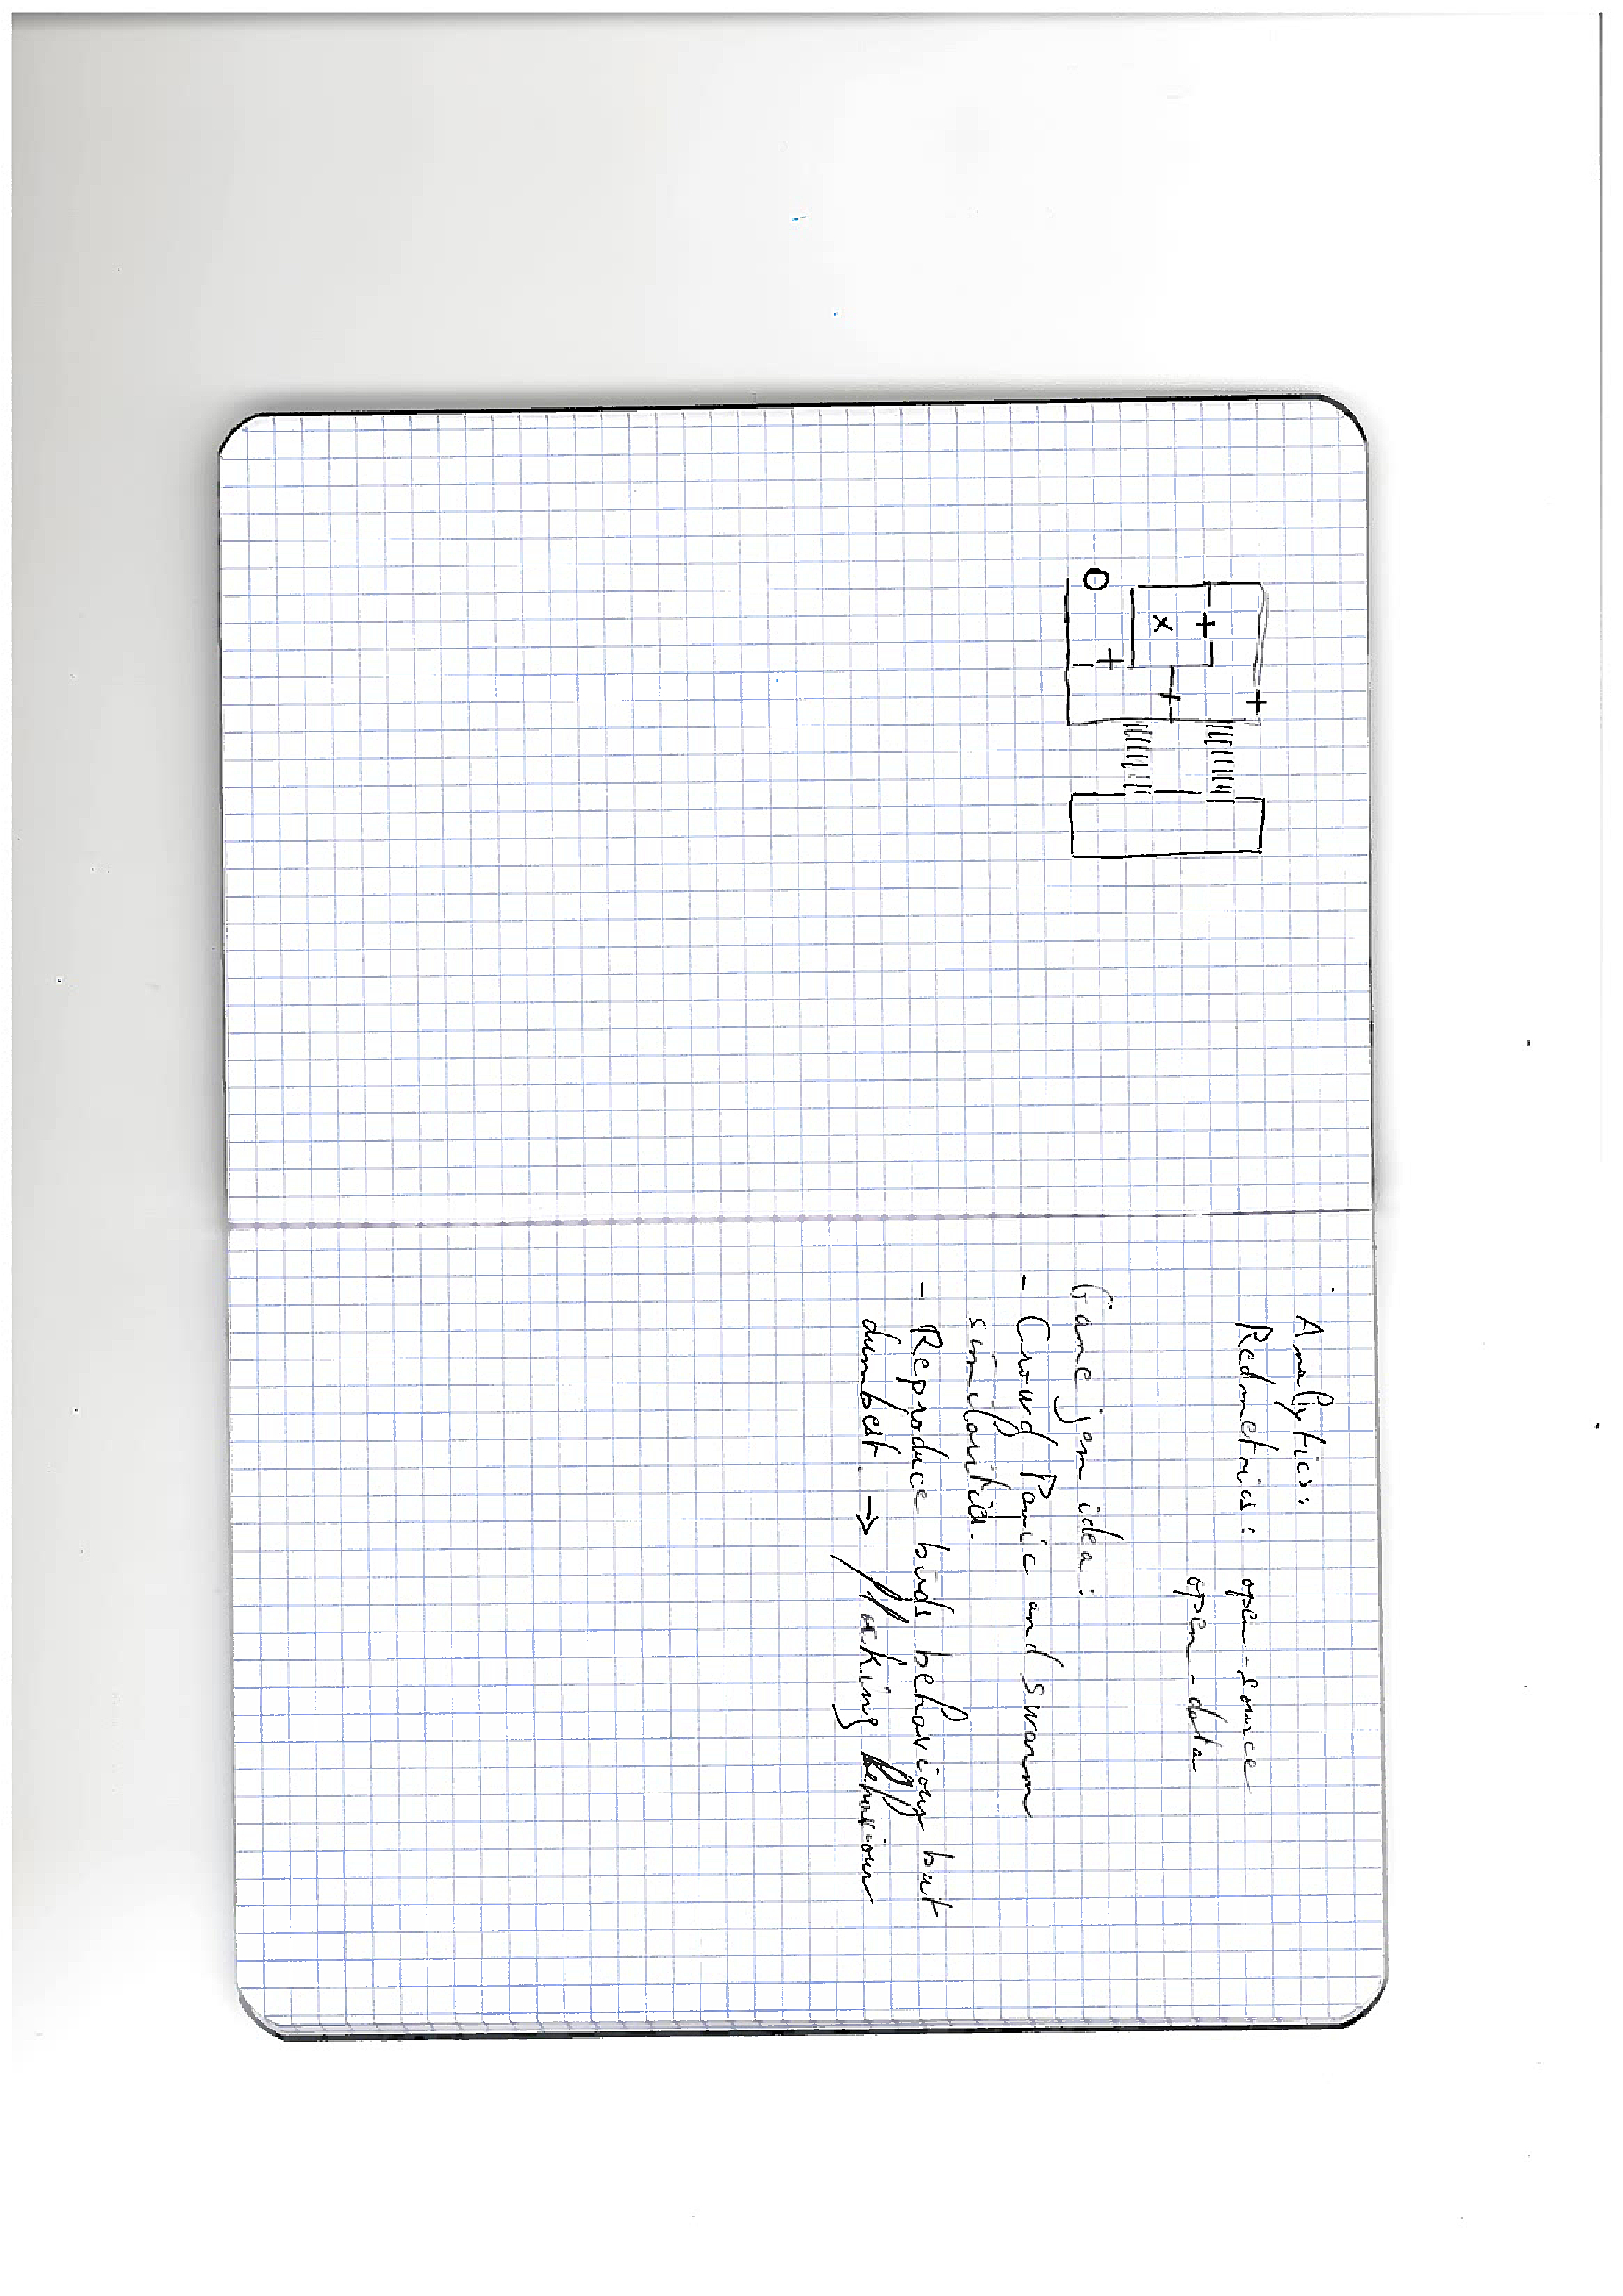 Analytics:
Redmetrics: open-source
open-data
Game jam idea:
- Crowd Panic and swarm
similarities.
- Reproduce birds behaviour but
dumbest. → flocking behaviour
O
x
+
+
+
+